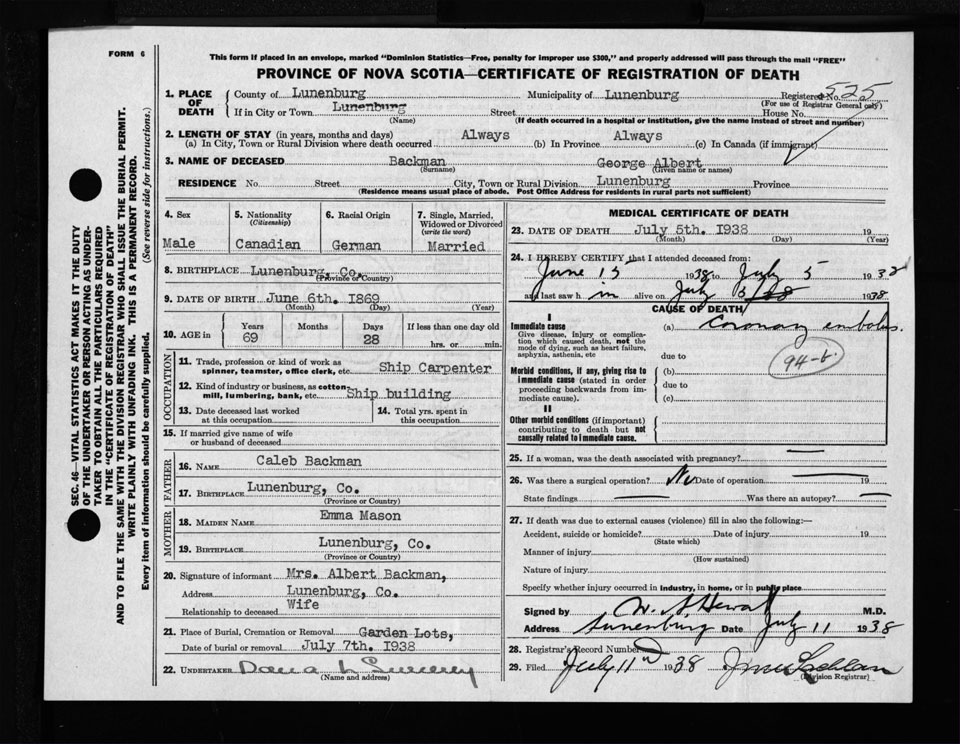 FORM 6
This form if placed in an envelope, marked "Dominion Statistics—Free, penalty for improper use $300," and properly addressed will pass through the mail "FREE"
PROVINCE OF NOVA SCOTIA—CERTIFICATE OF REGISTRATION OF DEATH
1. PLACE OF DEATH County of Lunenburg Municipality of Lunenburg Registered No. 525
(For use of Registrar General only)
If in City or Town Lunenburg Street House No.
(Name) (If death occurred in a hospital or institution, give the name instead of street and number)
2. LENGTH OF STAY (in years, months and days) Always Always
(a) In City, Town or Rural Division where death occurred (b) In Province (c) In Canada (if immigrant)
3. NAME OF DECEASED Backman George Albert
(Surname) (Given name or names)
RESIDENCE No. Street City, Town or Rural Division Lunenburg Province
(Residence means usual place of abode. Post Office Address for residents in rural parts not sufficient)
4. Sex Male
5. Nationality (Citizenship) Canadian
6. Racial Origin German
7. Single, Married, Widowed or Divorced (write the word) Married
8. BIRTHPLACE Lunenburg, Co.
(Province or Country)
9. DATE OF BIRTH June 6th. I869
(Month) (Day) (Year)
10. AGE in Years Months Days If less than one day old
69 28 hrs. or min.
OCCUPATION
11. Trade, profession or kind of work as spinner, teamster, office clerk, etc. Ship Carpenter
12. Kind of industry or business, as cotton-mill, lumbering, bank, etc. Ship building
13. Date deceased last worked at this occupation
14. Total yrs. spent in this occupation
15. If married give name of wife or husband of deceased
FATHER
16. NAME Caleb Backman
17. BIRTHPLACE Lunenburg, Co.
(Province or Country)
MOTHER
18. MAIDEN NAME Emma Mason
19. BIRTHPLACE Lunenburg, Co.
(Province or Country)
20. Signature of informant Mrs. Albert Backman,
Address Lunenburg, Co.
Relationship to deceased Wife
21. Place of Burial, Cremation or Removal Garden Lots,
Date of burial or removal July 7th. I938
22. UNDERTAKER
(Name and address)
MEDICAL CERTIFICATE OF DEATH
23. DATE OF DEATH July 5th. I938 19
(Month) (Day) (Year)
24. I HEREBY CERTIFY that I attended deceased from:
June 15 1938 to July 5 1938
and last saw h im alive on July 5 1938
CAUSE OF DEATH
I
Immediate cause (a) Coronary embolus.
Give disease, injury or complication which caused death, not the mode of dying, such as heart failure, asphyxia, asthenia, etc
due to
94-b.
Morbid conditions, if any, giving rise to immediate cause (stated in order proceeding backwards from immediate cause).
(b)
due to
(c)
II
Other morbid conditions (if important) contributing to death but not causally related to immediate cause.
25. If a woman, was the death associated with pregnancy?
26. Was there a surgical operation? No Date of operation 19
State findings Was there an autopsy?
27. If death was due to external causes (violence) fill in also the following:—
Accident, suicide or homicide? Date of injury 19
(State which)
Manner of injury
(How sustained)
Nature of injury
Specify whether injury occurred in industry, in home, or in public place
Signed by M.D.
Address Lunenburg Date July 11 1938
28. Registrar's Record Number
29. Filed July 11 1938
(Division Registrar)
SEC. 46—VITAL STATISTICS ACT MAKES IT THE DUTY
OF THE UNDERTAKER OR PERSON ACTING AS UNDER-
TAKER TO OBTAIN ALL THE PARTICULARS REQUIRED
IN THE "CERTIFICATE OF REGISTRATION OF DEATH"
AND TO FILE THE SAME WITH THE DIVISION REGISTRAR WHO SHALL ISSUE THE BURIAL PERMIT.
WRITE PLAINLY WITH UNFADING INK. THIS IS A PERMANENT RECORD.
Every item of information should be carefully supplied. (See reverse side for instructions.)